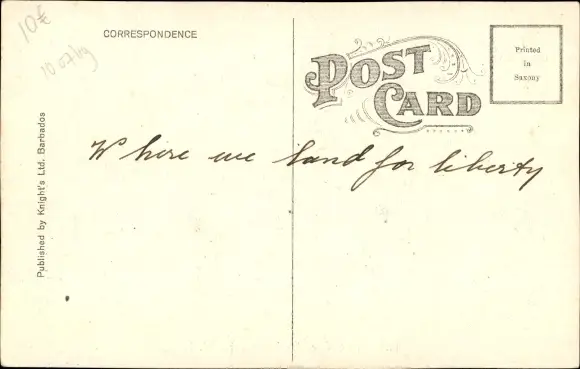 10€
CORRESPONDENCE
POST
CARD
Printed
in
Saxony
Where we land for liberty
Published by Knight's Ltd. Barbados